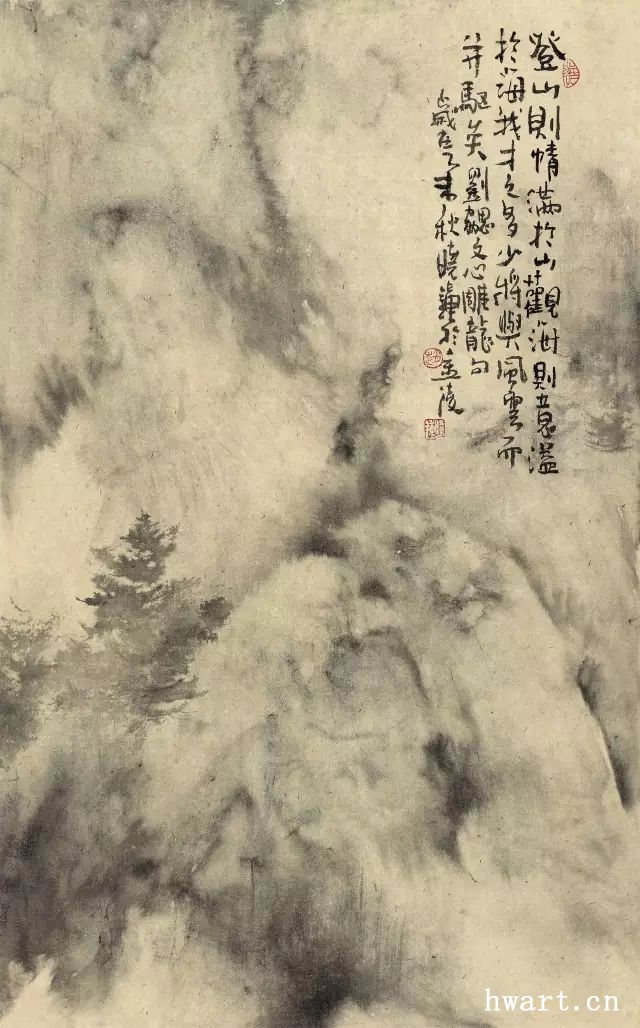 登山則情滿於山觀海則意溢
於海我才之多少將與風雲而
并驅矣劉勰文心雕龍句
歲在乙未秋曉 於金陵
hwart.cn